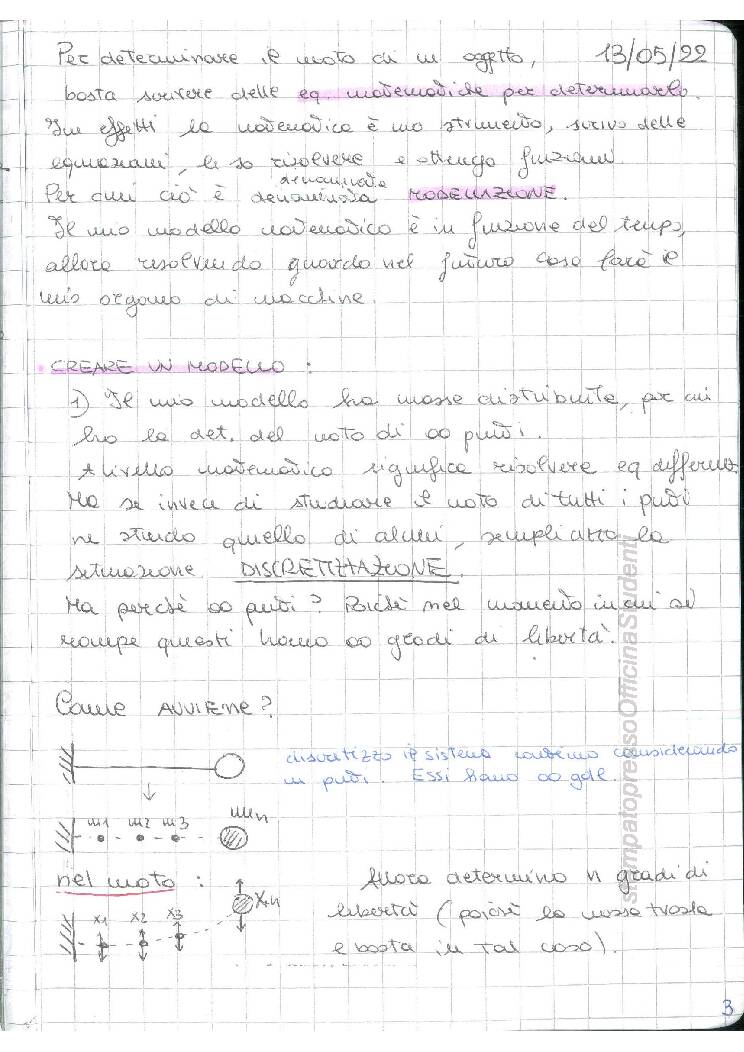 Per determinare il moto di un oggetto, 13/05/22
basta scrivere delle eq. matematiche per determinarlo.
In effetti la matematica è uno strumento, scrivo delle
equazioni, le so risolvere e ottengo funzioni.
denominata
Per cui ciò è denominata MODELLAZIONE.
Il mio modello matematico è in funzione del tempo,
allora risolvendo guardo nel futuro cosa farà il
mio organo di macchine.
CREARE UN MODELLO :
1) Il mio modello ha masse distribuite, per cui
ho la det. del moto di ∞ punti.
A livello matematico significa risolvere eq differenz.
Ma se invece di studiare il moto di tutti i punti
ne studio quello di alcuni, semplifico la
situazione. DISCRETIZZAZIONE.
Ma perchè ∞ punti? Poichè nel momento in cui si
rompe questi hanno ∞ gradi di libertà.
Come AVVIENE?
discretizzo il sistema continuo considerando
n punti. Essi hanno ∞ gdl.
m1 m2 m3 mn
nel moto :
x1 x2 x3 xn
Allora determino n gradi di
libertà (poichè la massa trasla
e basta in tal caso).
stampatopressoOfficinaStudenti
3